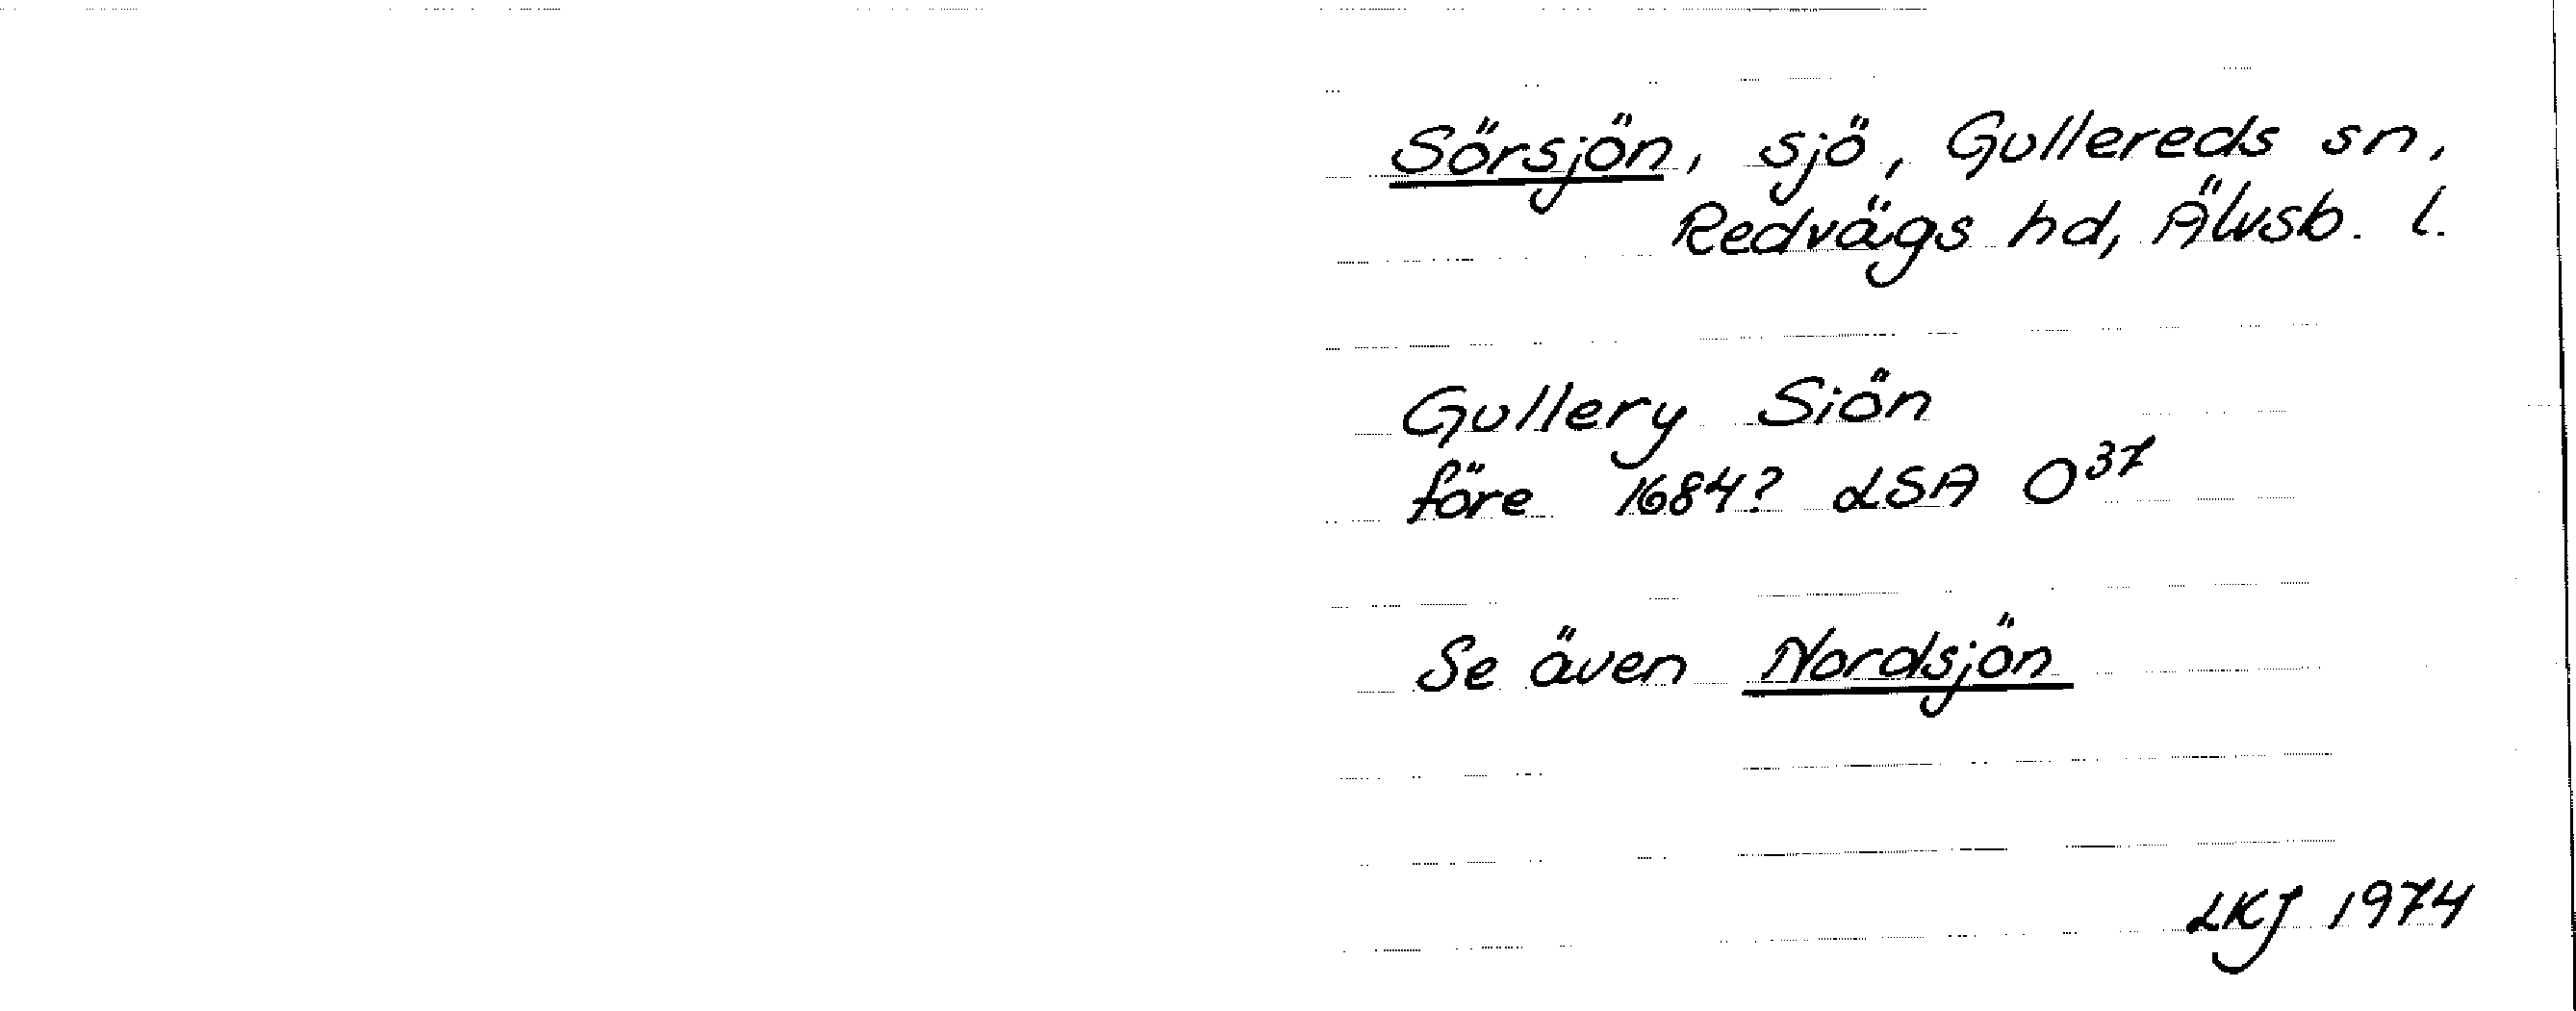 Sörsjön, sjö, Gullereds sn,
Redvägs hd, Älvsb. l.
Gullery Siön
före 1684? LSA O³⁷
Se även Nordsjön
LKJ 1974